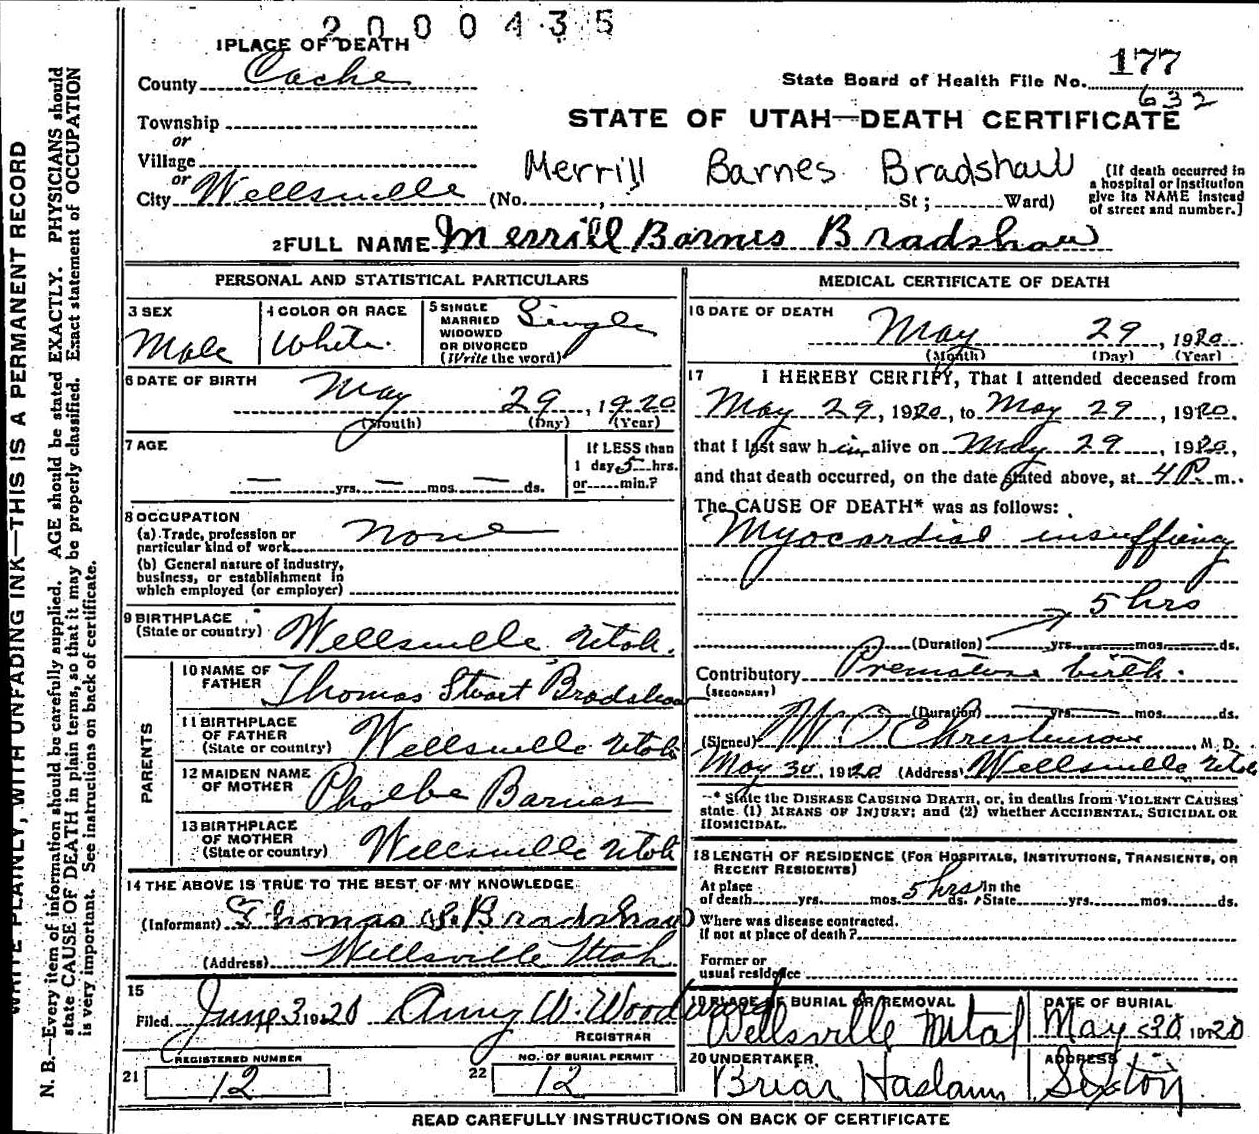 2000435
1 PLACE OF DEATH
County Cache
State Board of Health File No. 177
632
Township
or
Village
or
City Wellsville (No. , St; Ward)
STATE OF UTAH—DEATH CERTIFICATE
Merrill Barnes Bradshaw
(If death occurred in
a hospital or institution
give its NAME instead
of street and number.]
2 FULL NAME Merrill Barnes Bradshaw
PERSONAL AND STATISTICAL PARTICULARS
3 SEX
Male
4 COLOR OR RACE
White.
5 SINGLE
MARRIED
WIDOWED
OR DIVORCED
(Write the word)
Single
6 DATE OF BIRTH
May 29, 1920
(Month) (Day) (Year)
7 AGE
— yrs. — mos. — ds.
If LESS than
1 day, 5 hrs.
or min.?
8 OCCUPATION
(a) Trade, profession or
particular kind of work None
(b) General nature of Industry,
business, or establishment in
which employed (or employer)
9 BIRTHPLACE
(State or country) Wellsville Utah.
PARENTS
10 NAME OF
FATHER Thomas Stuart Bradshaw
11 BIRTHPLACE
OF FATHER
(State or country) Wellsville Utah
12 MAIDEN NAME
OF MOTHER Phoebe Barnes
13 BIRTHPLACE
OF MOTHER
(State or country) Wellsville Utah
14 THE ABOVE IS TRUE TO THE BEST OF MY KNOWLEDGE
(Informant) Thomas S. Bradshaw
(Address) Wellsville Utah
15
Filed June 3 1920 Amy W. Woodward
REGISTRAR
REGISTERED NUMBER
21 12
NO. OF BURIAL PERMIT
22 12
MEDICAL CERTIFICATE OF DEATH
16 DATE OF DEATH
May 29, 1920
(Month) (Day) (Year)
17 I HEREBY CERTIFY, That I attended deceased from
May 29, 1920, to May 29, 1920.
that I last saw him alive on May 29, 1920,
and that death occurred, on the date stated above, at 4 P. m.
The CAUSE OF DEATH* was as follows:
Myocardial insuffiency
5 hrs
(Duration) yrs. mos. ds.
Contributory Premature birth.
(SECONDARY)
(Duration) yrs. mos. ds.
(Signed) W O Christenson, M. D.
May 30, 1920 (Address) Wellsville Utah
* State the DISEASE CAUSING DEATH, or, in deaths from VIOLENT CAUSES
state (1) MEANS OF INJURY; and (2) whether ACCIDENTAL, SUICIDAL OR
HOMICIDAL.
18 LENGTH OF RESIDENCE (FOR HOSPITALS, INSTITUTIONS, TRANSIENTS, OR
RECENT RESIDENTS)
At place
of death yrs. mos. 5 hrs ds. In the State yrs. mos. ds.
Where was disease contracted.
if not at place of death?
Former or
usual residence
19 PLACE OF BURIAL OR REMOVAL
Wellsville
DATE OF BURIAL
May 30 1920
20 UNDERTAKER
Briar
ADDRESS
Sexton
READ CAREFULLY INSTRUCTIONS ON BACK OF CERTIFICATE
WRITE PLAINLY, WITH UNFADING INK—THIS IS A PERMANENT RECORD
N. B.—Every item of information should be carefully supplied. AGE should be stated EXACTLY. PHYSICIANS should
state CAUSE OF DEATH in plain terms, so that it may be properly classified. Exact statement of OCCUPATION
is very important. See instructions on back of certificate.